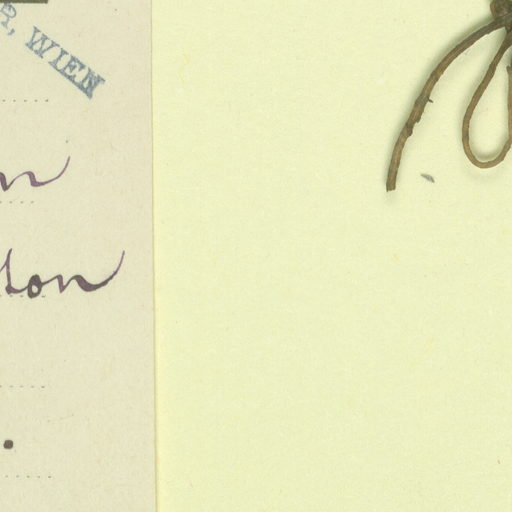 R, WIEN
n
ton
.